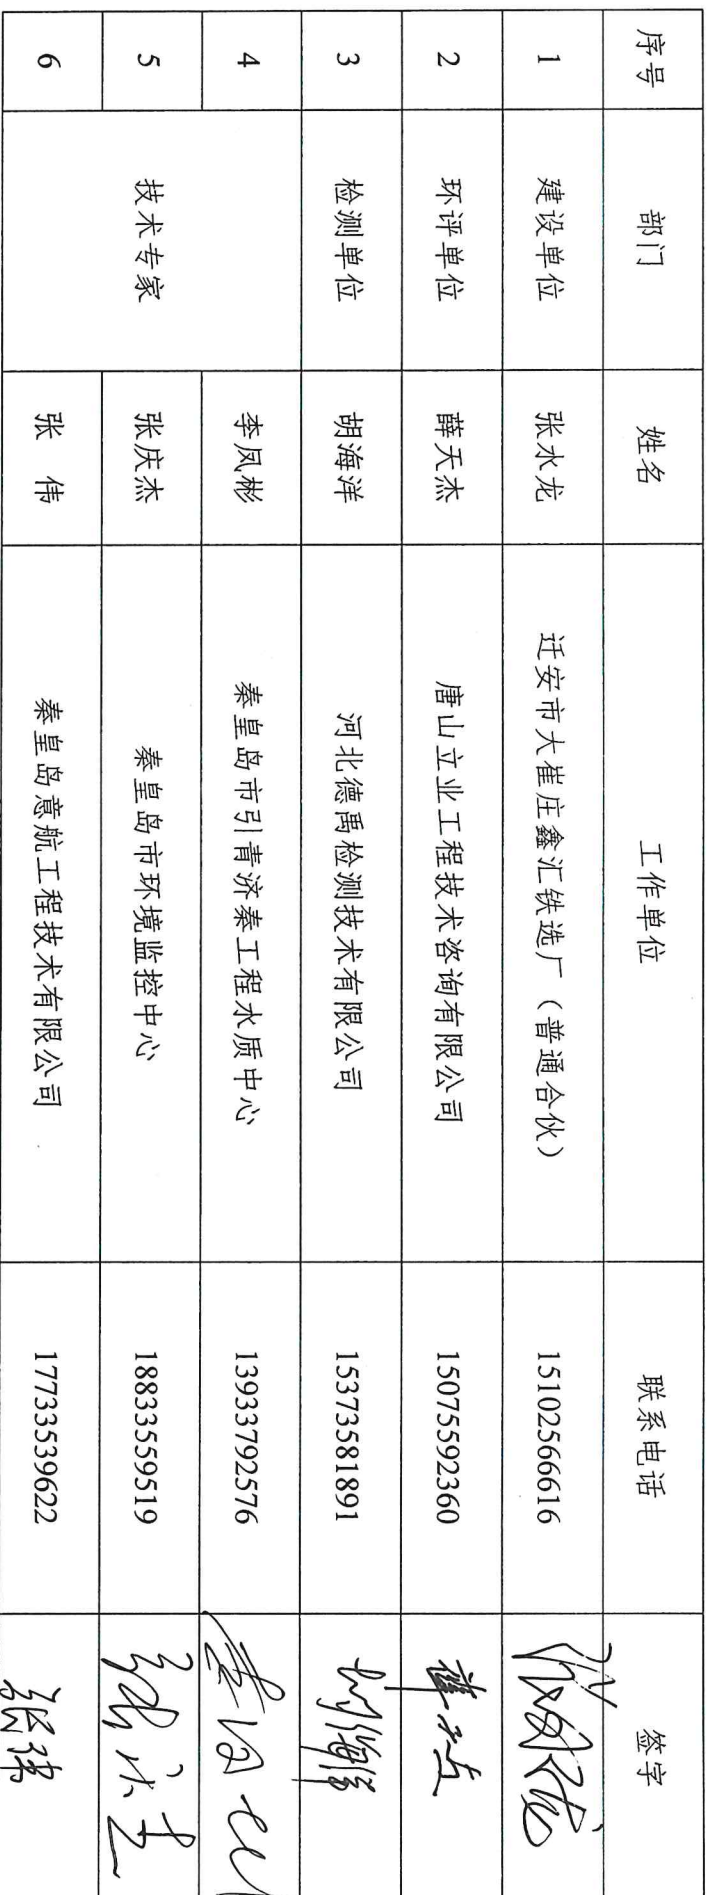 序号 部门 姓名 工作单位 联系电话 签字
1 建设单位 张水龙 迁安市大崔庄鑫汇铁选厂（普通合伙） 15102566616 张水龙
2 环评单位 薛天杰 唐山立业工程技术咨询有限公司 15075592360 薛天杰
3 检测单位 胡海洋 河北德禹检测技术有限公司 15373581891 胡海洋
4 技术专家 李凤彬 秦皇岛市引青济秦工程水质中心 13933792576 李凤彬
5 张庆杰 秦皇岛市环境监控中心 18833559519 张庆杰
6 张 伟 秦皇岛意航工程技术有限公司 17733539622 张伟